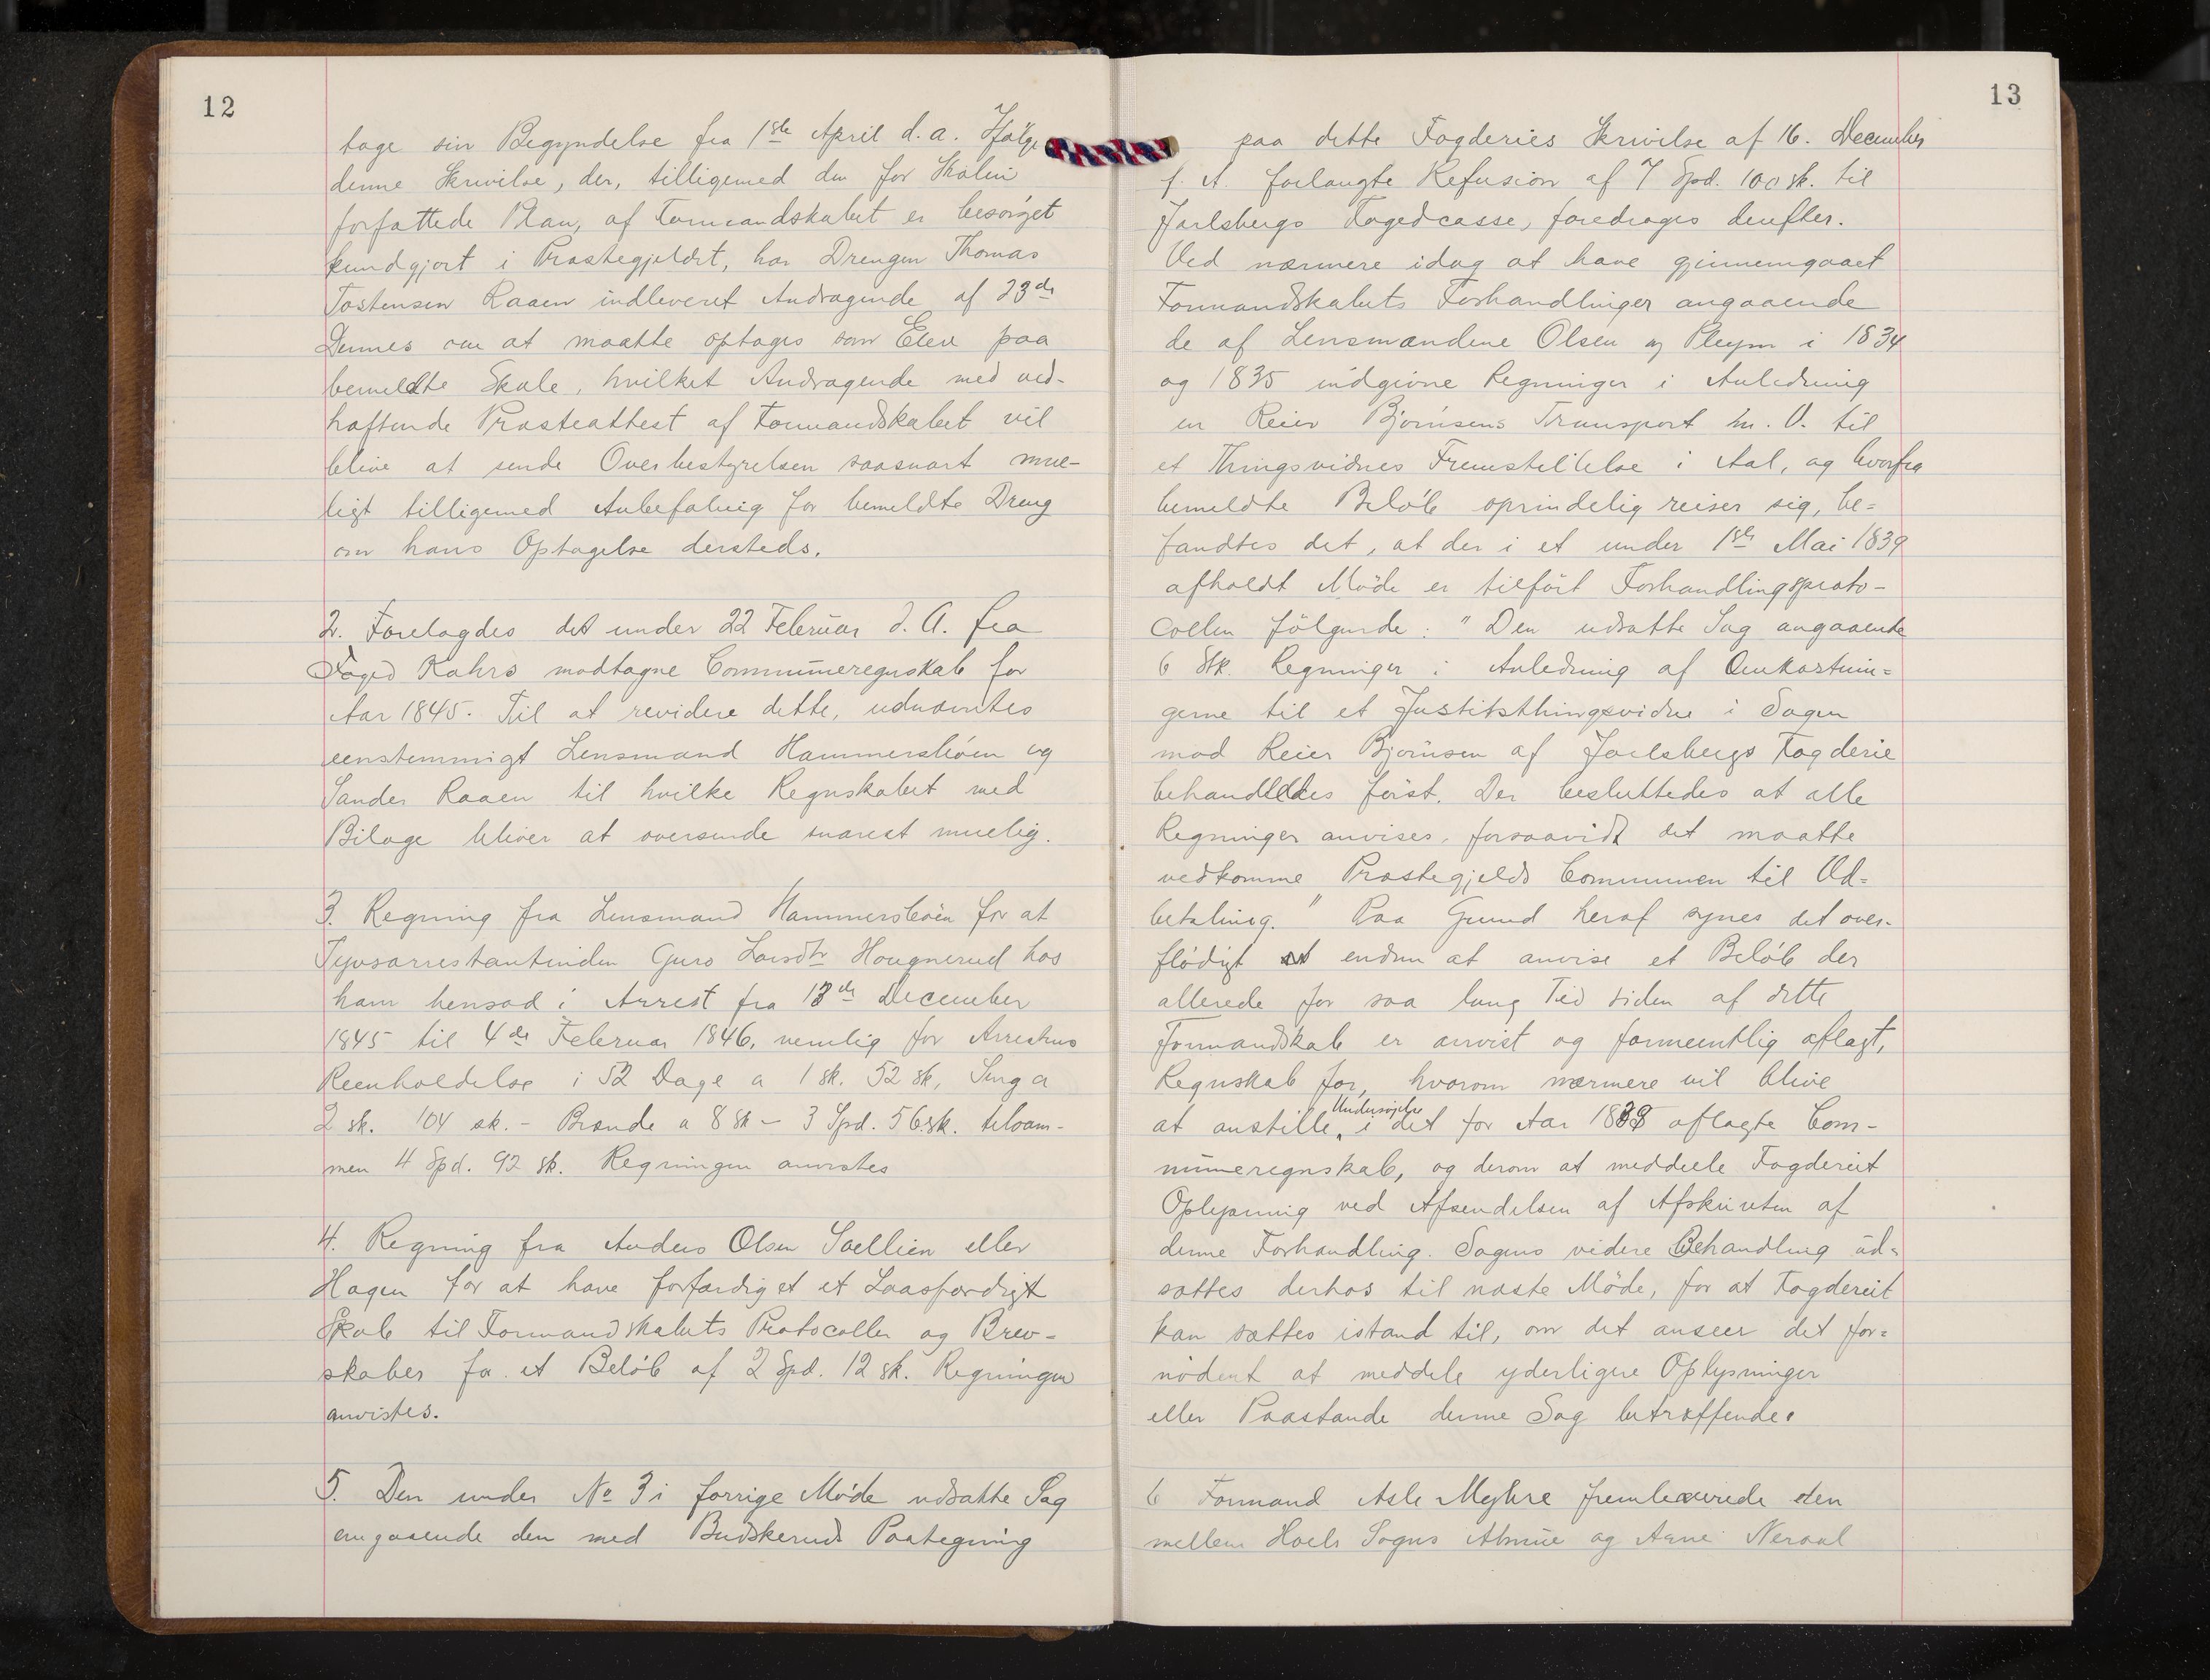 12
tage sin Begyndelse fra 1ste April d.a. Ifølge
denne Skrivelse, der, tilligemed den for Skolen
forfattede Plan, af Formandskabet er besørget
kundgjort i Præstegjeldet, har Drengen Thomas
Tostensen Raaen indleveret Andragende af 23de
Dennes om at maatte optages som Elev paa
bemeldte Skole, hvilket Andragende med ved-
hæftende Præsteattest af Formandskabet vil
blive at sende Overbestyrelsen saasnart mue-
ligt tilligemed Anbefaling for bemeldte Dreng
om hans Optagelse dersteds.
2. Forelagdes det under 22 Februar d. A. fra
Foged Kahrs modtagne Communeregnskab for
Aar 1845. Til at revidere dette, udnævntes
eenstemmigt Lensmand Hammersbøen og
Sander Raaen til hvilke Regnskabet med
Bilage bliver at oversende snarest muelig.
3. Regning fra Lensmand Hammersbøen for at
Tyvsarrestantinden Guro Larsdtr Hougnerud hos
ham hensad i Arrest fra 13de December
1845 til 4de Februar 1846, nemlig for Arresthus
Reenholdelse i 52 Dage a 1 sk. 52 sk, Seng a
2 sk. 104 sk. - Brænde a 8 sk - 3 Spd. 56 sk. tilsam-
men 4 Spd. 92 sk. Regningen anvistes
4. Regning fra Anders Olsen Sællien eller
Hagen for at have forfærdiget et Laasfærdigt
Skab til Formandskabets Protocoller og Brev-
skaber for et Beløb af 2 Spd. 12 sk. Regningen
anvistes.
5. Den under No 3 i forrige Møde udsatte Sag
angaaende den med Buskeruds Paategning
13
paa dette Fogderies Skrivelse af 16. December
f. A. forlangte Refusion af 7 Spd. 100 sk. til
Jarlsbergs Fogedcasse, foredroges derefter.
Ved nærmere idag at have gjennemgaaet
Formandskabets Forhandlinger angaaende
de af Lensmændene Olsen og Pleym i 1834
og 1835 indgivne Regninger i Anledning
en Reier Bjørnsens Transport m. V. til
et Thingsvidnes Fremstillelse i Aal, og hvorfra
bemeldte Beløb oprindelig reiser sig, be=
fandtes det, at der i et under 1ste Mai 1839
afholdt Møde er tilført Forhandlingsproto-
collen følgende: "Den udsatte Sag angaaende
6 Stk. Regninger i Anledning af Omkostnin=
gerne til et Justitsthingsvidne i Sagen
mod Reier Bjørnsen af Jarlsbergs Fogderie
behandledes først. Der besluttedes at alle
Regninger anvises, forsaavidt det maatte
vedkomme Præstegjelds Communen til Ud=
betaling." Paa Grund heraf synes det over-
flødigt endnu at anvise et Beløb der
allerede for saa lang Tid siden af dette
Formandskab er anvist og formeentlig aflagt,
Regnskab for, hvorom nærmere vil blive
at anstille Undersøgelse i det for Aar 1839 aflagte Com-
muneregnskab, og derom at meddeele Fogderiet
Oplysning ved Afsendelsen af Afskriveten af
denne Forhandling. Sagens videre Behandling ud=
sættes derhos til næste Møde, for at Fogderiet
kan sættes istand til, om det anseer det for=
nødent at meddele yderligere Oplysninger
eller Paastande denne Sag betræffende.
6 Formand Asle Myhre fremleverede den
mellem Hoels Sogns Almue og Arne Neraal